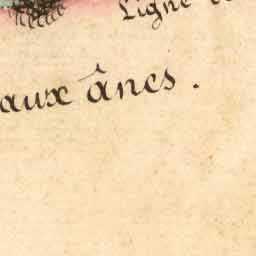 Ligne
aux ânes.